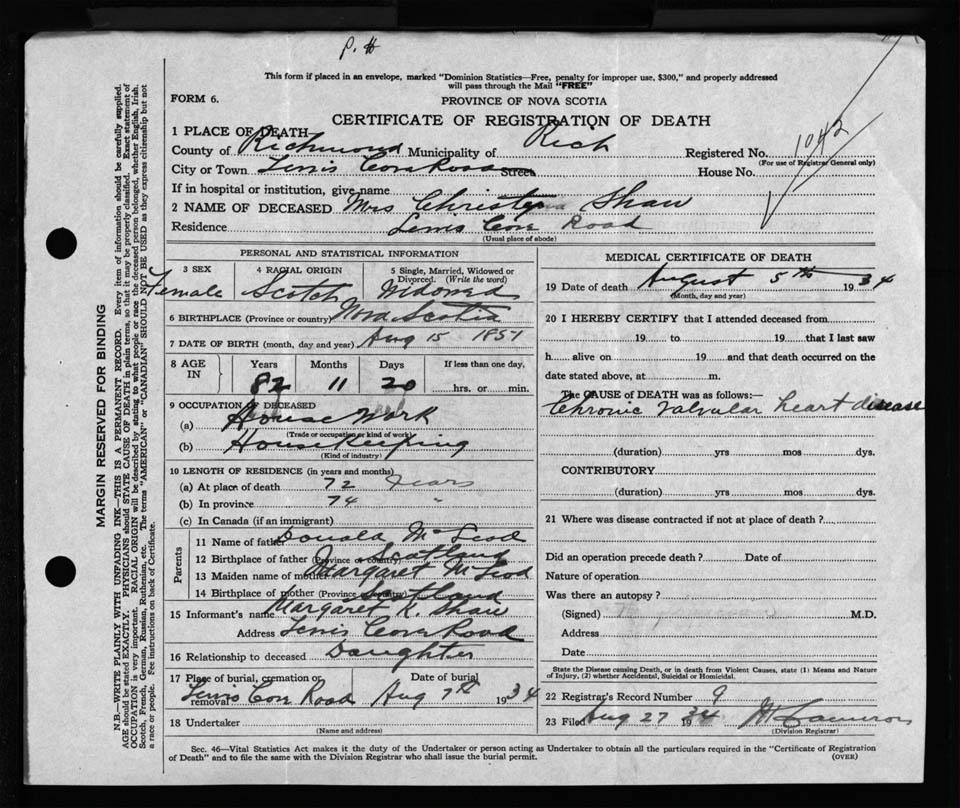 P. H
This form if placed in an envelope, marked "Dominion Statistics—Free, penalty for improper use, $300," and properly addressed
will pass through the Mail "FREE"
FORM 6.
PROVINCE OF NOVA SCOTIA
CERTIFICATE OF REGISTRATION OF DEATH
1 PLACE OF DEATH
County of Richmond Municipality of Rich Registered No. 1042
(For use of Registrar General only)
City or Town Lewis Cove Road Street House No.
If in hospital or institution, give name
2 NAME OF DECEASED Mrs Christena Shaw
Residence Lewis Cove Road
(Usual place of abode)
PERSONAL AND STATISTICAL INFORMATION
3 SEX 4 RACIAL ORIGIN 5 Single, Married, Widowed or Divorced. (Write the word)
Female Scotch Widowed
6 BIRTHPLACE (Province or country) Nova Scotia
7 DATE OF BIRTH (month, day and year) Aug 15 1851
8 AGE IN Years Months Days If less than one day,
82 11 20 hrs. or min.
9 OCCUPATION OF DECEASED
(a) House Work
(Trade or occupation or kind of work)
(b) Housekeeping
(Kind of industry)
10 LENGTH OF RESIDENCE (in years and months)
(a) At place of death 72 years
(b) In province 74 "
(c) In Canada (if an immigrant)
Parents
11 Name of father Donald McLeod
12 Birthplace of father (Province or country) Scotland
13 Maiden name of mother Margaret McLeod
14 Birthplace of mother (Province or country) Scotland
15 Informant's name Margaret K. Shaw
Address Lewis Cove Road
16 Relationship to deceased Daughter
17 Place of burial, cremation or removal Date of burial
Lewis Cove Road Aug 7th 1934
18 Undertaker
(Name and address)
MEDICAL CERTIFICATE OF DEATH
19 Date of death August 5th 1934
(Month, day and year)
20 I HEREBY CERTIFY that I attended deceased from
19 to 19 that I last saw
h alive on 19 and that death occurred on the
date stated above, at m.
The CAUSE of DEATH was as follows:—
Chronic valvular heart disease
(duration) yrs mos dys.
CONTRIBUTORY
(duration) yrs mos dys.
21 Where was disease contracted if not at place of death?
Did an operation precede death? Date of
Nature of operation
Was there an autopsy?
(Signed) M.D.
Address
Date
State the Disease causing Death, or in death from Violent Causes, state (1) Means and Nature
of Injury, (2) whether Accidental, Suicidal or Homicidal.
22 Registrar's Record Number 9
23 Filed Aug 27 1934 Cameron
(Division Registrar)
Sec. 46—Vital Statistics Act makes it the duty of the Undertaker or person acting as Undertaker to obtain all the particulars required in the "Certificate of Registration
of Death" and to file the same with the Division Registrar who shall issue the burial permit. (OVER)
MARGIN RESERVED FOR BINDING
N.B.—WRITE PLAINLY WITH UNFADING INK—THIS IS A PERMANENT RECORD. Every item of information should be carefully supplied.
AGE should be stated EXACTLY. PHYSICIANS should STATE CAUSE OF DEATH in plain terms, so that it may be properly classified. Exact statement of
OCCUPATION is very important. RACIAL ORIGIN will be described by stating to what people or race the deceased person belonged, whether English, Irish,
Scotch, French, German, Russian, Ruthenian, etc. The terms "AMERICAN" or "CANADIAN" SHOULD NOT BE USED as they express citizenship but not
a race or people. See instructions on back of Certificate.